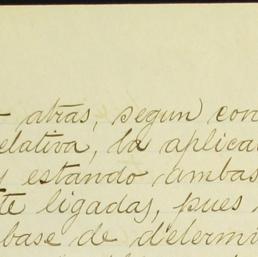 atrás, segun con
elativa, la aplica
y estando ambas
te ligadas, pues
base de determi